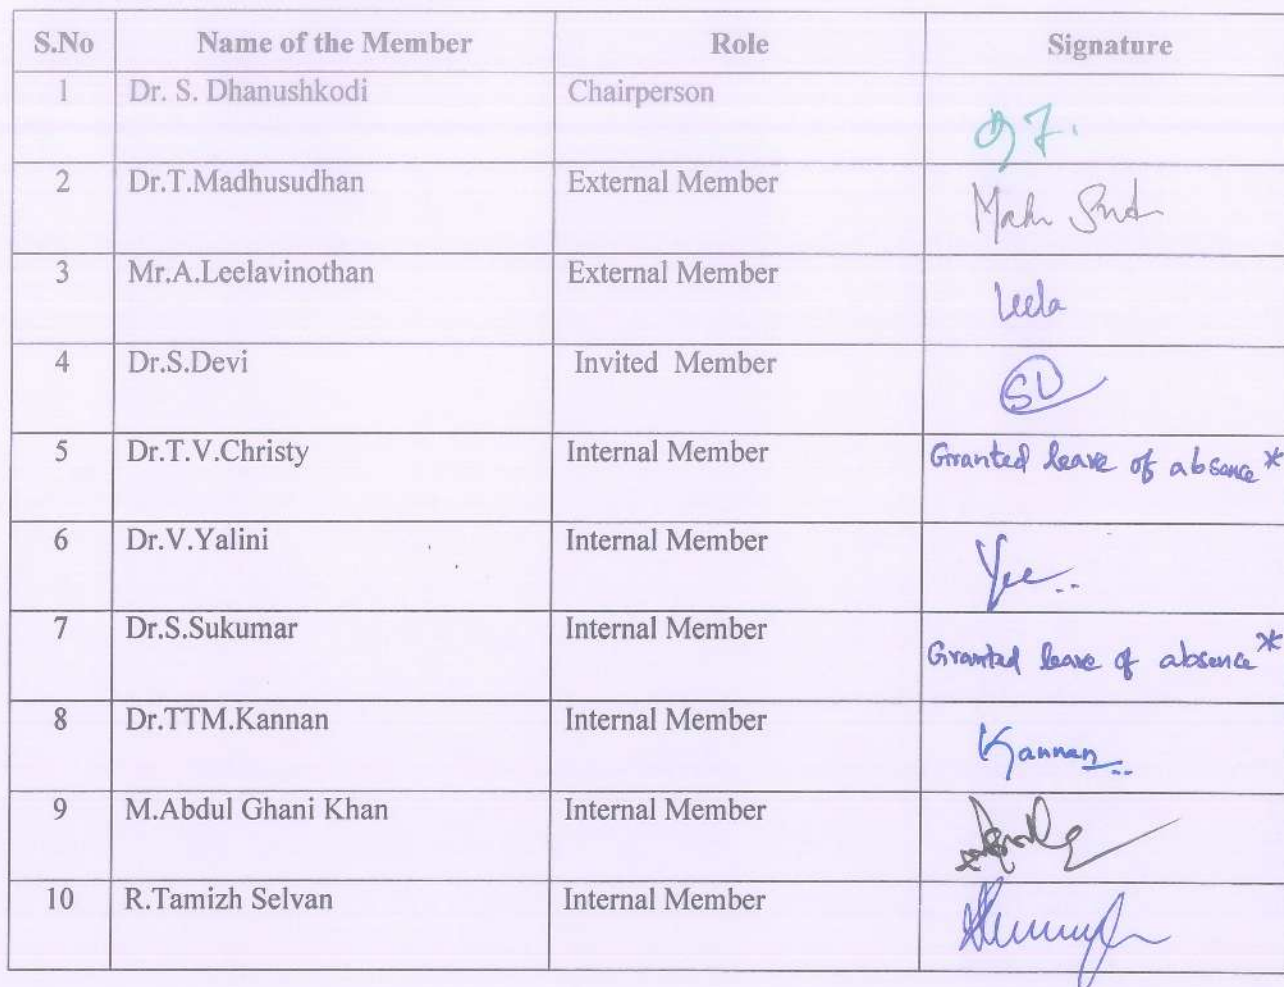 S.No Name of the Member Role Signature
1 Dr. S. Dhanushkodi Chairperson
2 Dr.T.Madhusudhan External Member
3 Mr.A.Leelavinothan External Member Leela
4 Dr.S.Devi Invited Member SD
5 Dr.T.V.Christy Internal Member Granted leave of absence*
6 Dr.V.Yalini Internal Member
7 Dr.S.Sukumar Internal Member Granted leave of absence*
8 Dr.TTM.Kannan Internal Member Kannan
9 M.Abdul Ghani Khan Internal Member
10 R.Tamizh Selvan Internal Member